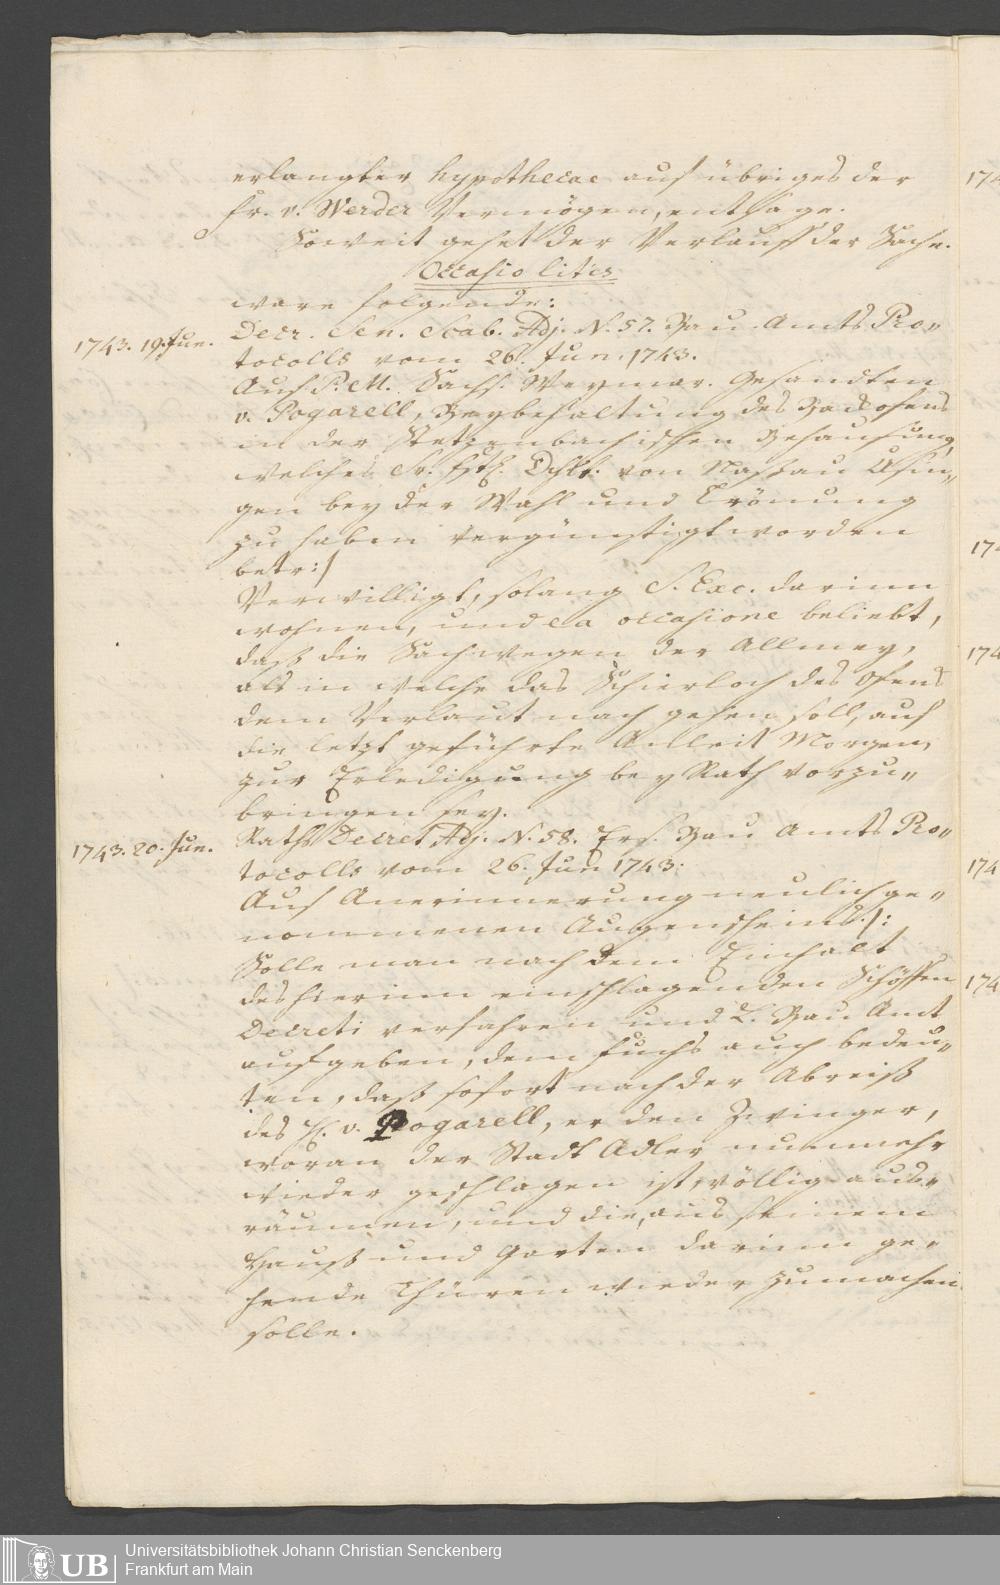 erlangter hypothecae auf übriges der
Fr. v. Werder Vermögen, entsage.
Soweit gehet der Verlauff der Sache.
Occasio litis
ware folgende:
1743. 19. Jun.
Decr. Sen. Scab. Adj. N. 57. Bau-Amts Pro„
tocolls vom 26. Jun. 1743.
Auf P. M. Sachs. Weymar. Gesandten
v. Pogarell, Beybehaltung des Backofens
in der Stetzenbachischen Behausung,
welches Sr. Hfstl. Dchlt. von Nassau Usin„
gen bey der Wahl und Crönung
zu haben vergünstigt worden
betr:/
Verwilligt, solang S. Exc. darinn
wohnen, und ea occasione beliebt,
daß die Sach wegen der Allmey,
als in welche das Schierloch des Ofens
dem Verlaut nach gehen soll, auf
die letzt geführte Anleit Morgen
zur Erledigung bey Rath vorzu„
bringen sey.
1743. 20. Jun.
Raths Decret Adj. N. 58. Ers. Bau Amts Pro„
tocolls vom 26. Jun 1743:
Auf Anerinnerung neulich ge„
nommenen Augenscheins./:
Solle man nach dem Einhalt
des hierinn einschlagenden Schöffen
Decreti verfahren und L. Bau Amt
aufgeben, dem Fuchs auch bedeu„
ten, daß sofort nach der Abreiß
des H. v. Pogarell, er den Zwinger,
woran der Stadt Adler nunmehr
wieder geschlagen ist, völlig aus„
räumen, und die, aus seinem
Hauß und Garten darinn ge„
hende Thüren wieder zumachen
solle.
174
174
174
174
174
UB
Universitätsbibliothek Johann Christian Senckenberg
Frankfurt am Main